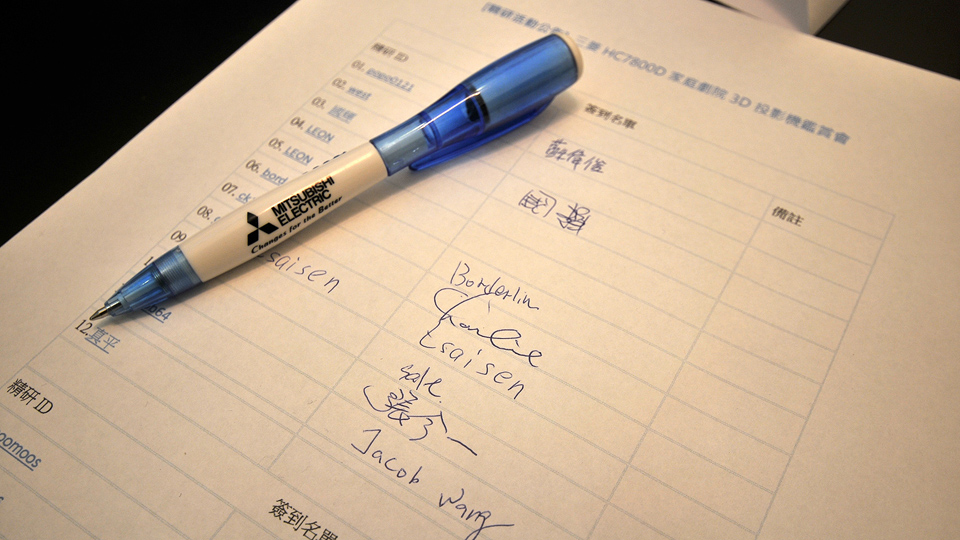 [精研活動公告] 三菱 HC7800D 家庭劇院 3D 投影機鑑賞會
精研 ID
簽到名單
備註
01.
02. west
03.
04. LEON
05. LEON
06. bord
07. ck
08.
09
Esaisen
664
12. 真平
蘇偉俊
Borderlin
Charlie
Esaisen
Jacob Wang
MITSUBISHI
ELECTRIC
Changes for the Better
精研 ID
oomoos
簽到名單